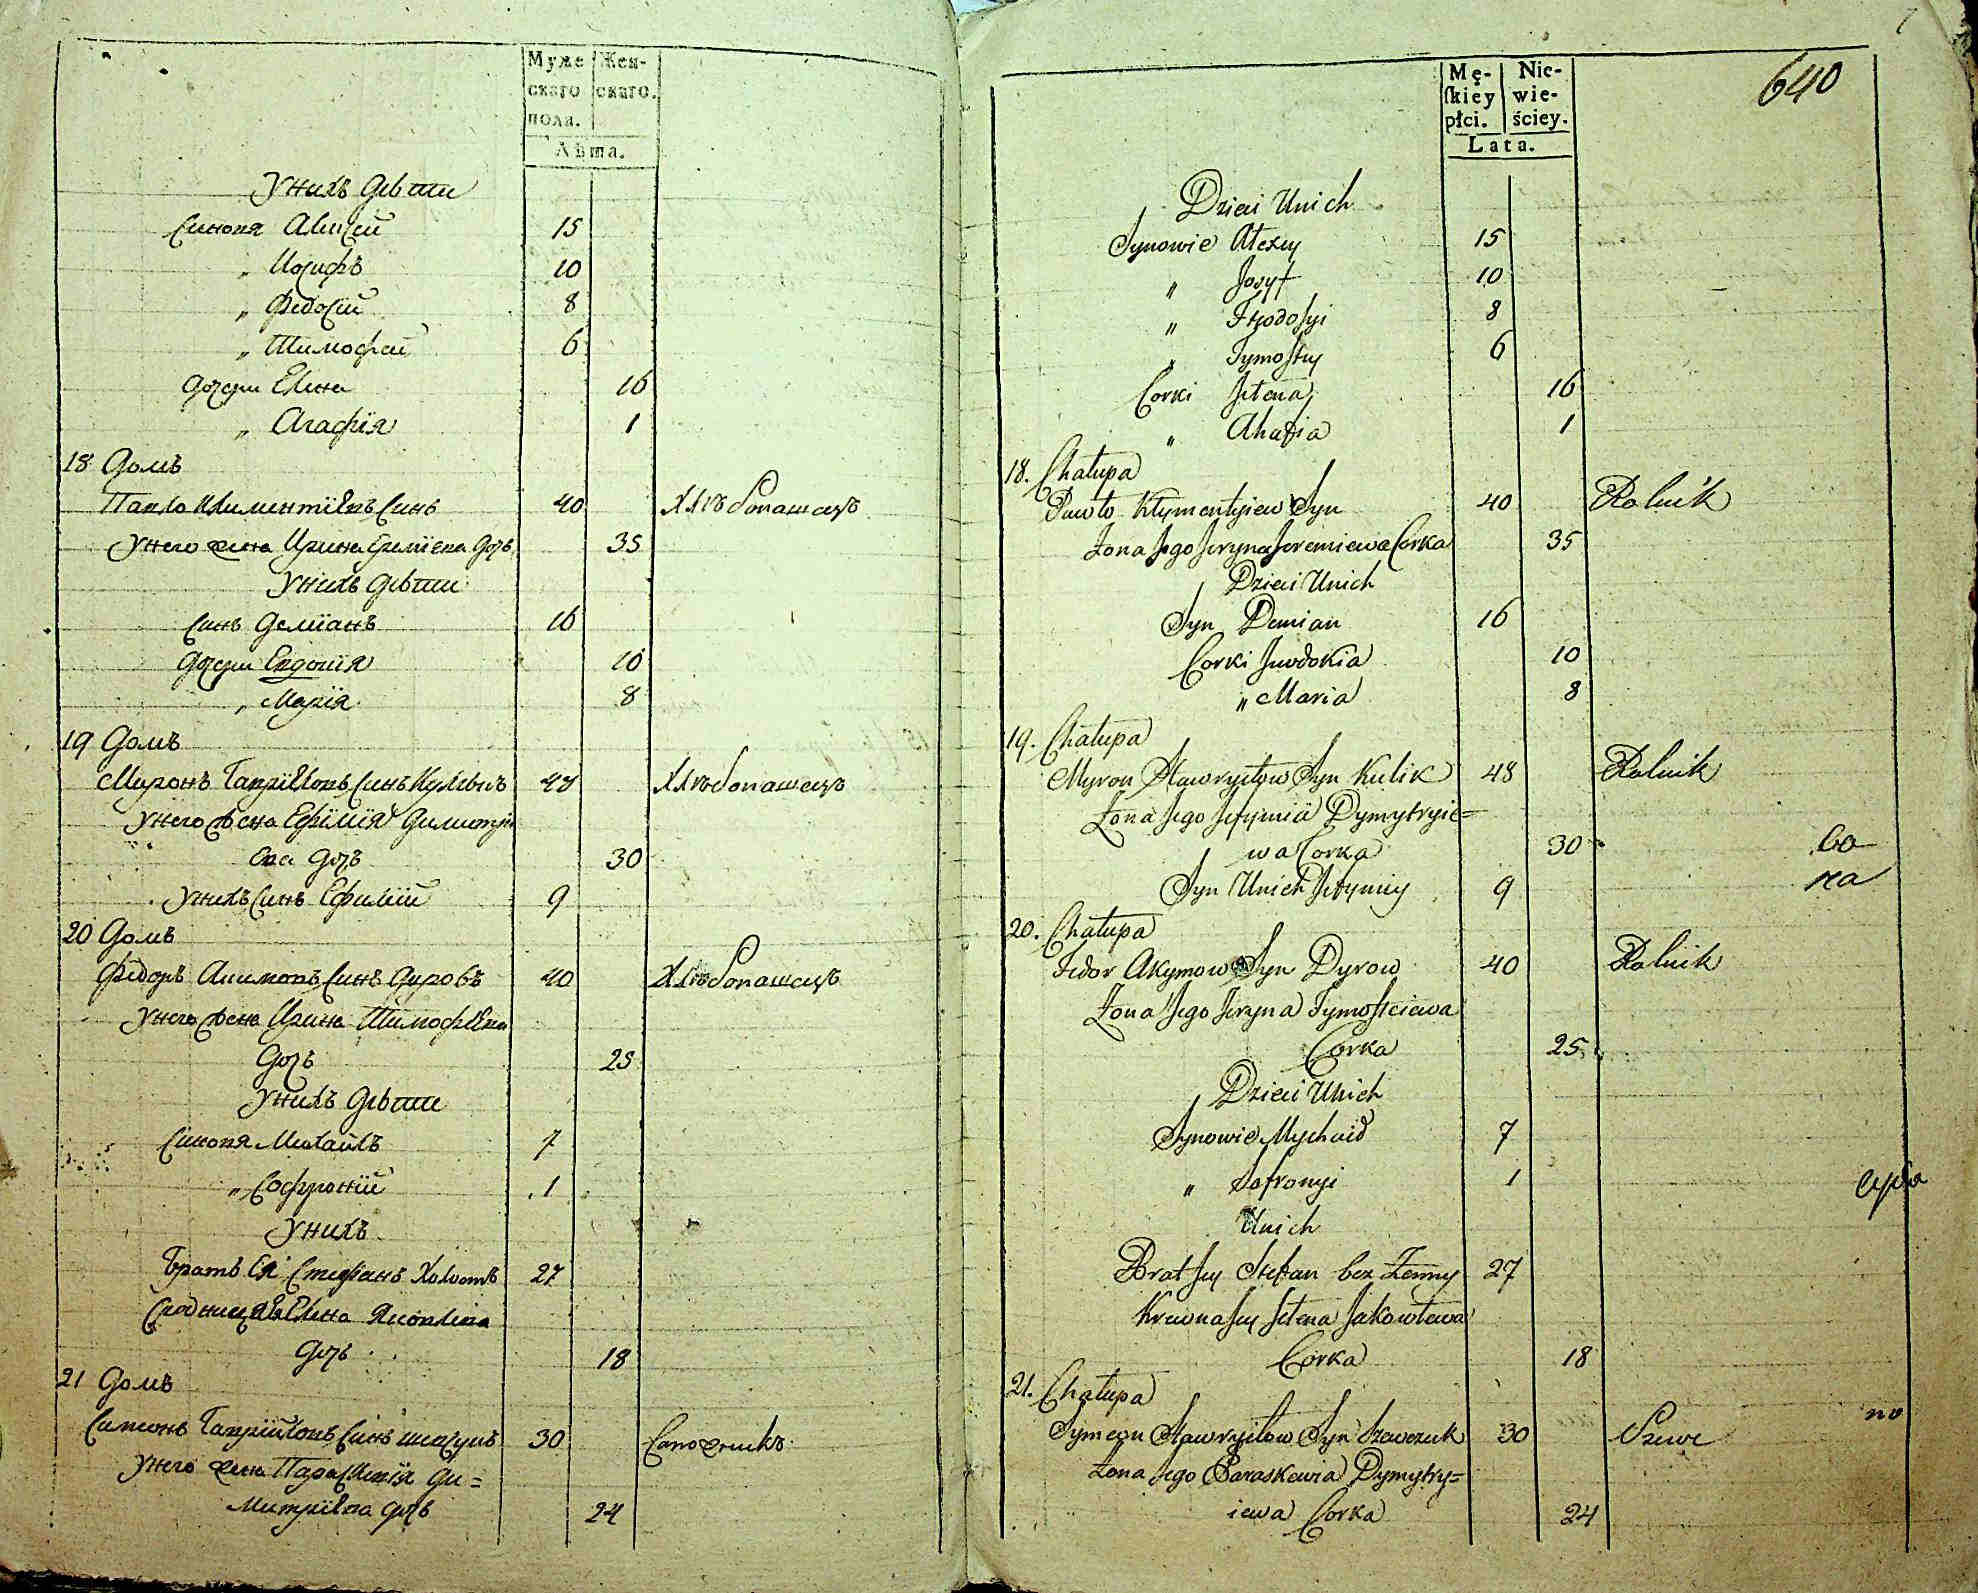 Муже
скаго
пола.
Жен-
скаго.
Лѣта.
Унихъ Дѣти
Синовя Алексій 15
„ Иосифъ 10
„ Федосій 8
„ Тимофей 6
Дочери Елена 16
„ Агафія 1
18 Домъ
Павло Климентіевъ Синъ 40 Хлѣбопашецъ
Унего жена Ирина Ереміева Дочь 35
Унихъ Дѣти
Синъ Деміанъ 16
Дочери Евдокія 10
„ Марія 8
19 Домъ
Миронъ Гавріиловъ Синъ Куликъ 48 Хлѣбопашецъ
Унего жена Ефімія Димитрі
ева Дочь 30
Унихъ Синъ Ефимій 9
20 Домъ
Федоръ Акимовъ Синъ Дировъ 40 Хлѣбопашецъ
Унего жена Ирина Тимофѣева
Дочь 25
Унихъ Дѣти
Синовя Михаилъ 7
„ Софроній 1
Унихъ
Братъ Ея Стефанъ Холостъ 27
Сродница Ея Елена Яковлева
Дочь 18
21 Домъ
Симеонъ Гавріиловъ Синъ 30 Сапожникъ
Унего жена Параскевія Ди=
митріева Дочь 24
640
Mę-
skiey
płci.
Nie-
wie-
ściey.
Lata.
Dzieci Unich
Synowie Alexy 15
„ Josyf 10
„ Fteodosyi 8
„ Tymoftey 6
Corki Jełena 16
„ Ahafia 1
18. Chałupa
Pawło Kłymentyiew Syn 40 Rolnik
Żona Jego Jeryna Jeremiewa Corka 35
Dzieci Unich
Syn Demian 16
Corki Jewdokia 10
„ Maria 8
19. Chałupa
Myron Hawryiłow Syn Kulik 48 Rolnik
Żona Jego Jefymia Dymytryie=
wa Corka 30
Syn Unich Jefymiy 9
20. Chałupa
Fedor Akymow Syn Dyrow 40 Rolnik
Żona Jego Jeryna Tymofteiewa
Corka 25
Dzieci Unich
Synowie Mychaił 7
„ Sofronyi 1
Unich
Brat Jey Stefan bez Żenny 27
Krewna Jey Jełena Jakowlewa
Corka 18
21. Chałupa
Symeon Hawryiłow Syn Szewczuk 30 Szewc
Żona Jego Paraskewia Dymytry=
iewa Corka 24